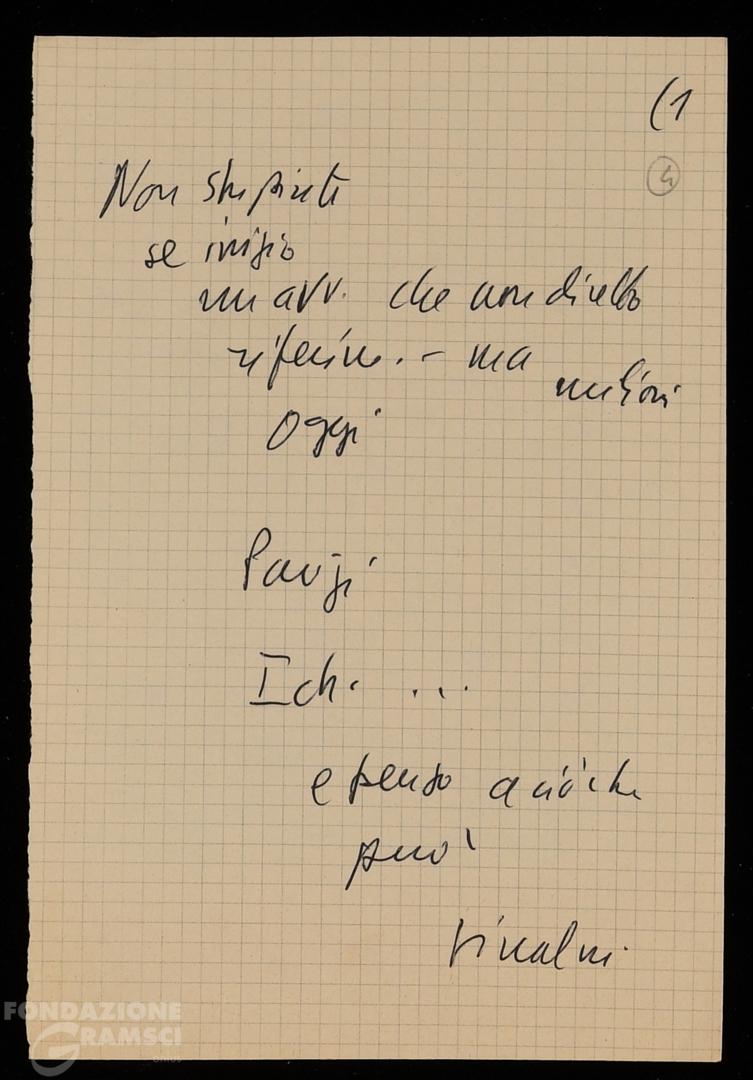 (1
4
Non stupirete
se inizio
un avv. che non diretto
riferim. - ma
milioni
Oggi
Parigi
Ich. ...
e penso a ciò che
può
FONDAZIONE
GRAMSCI
onlus